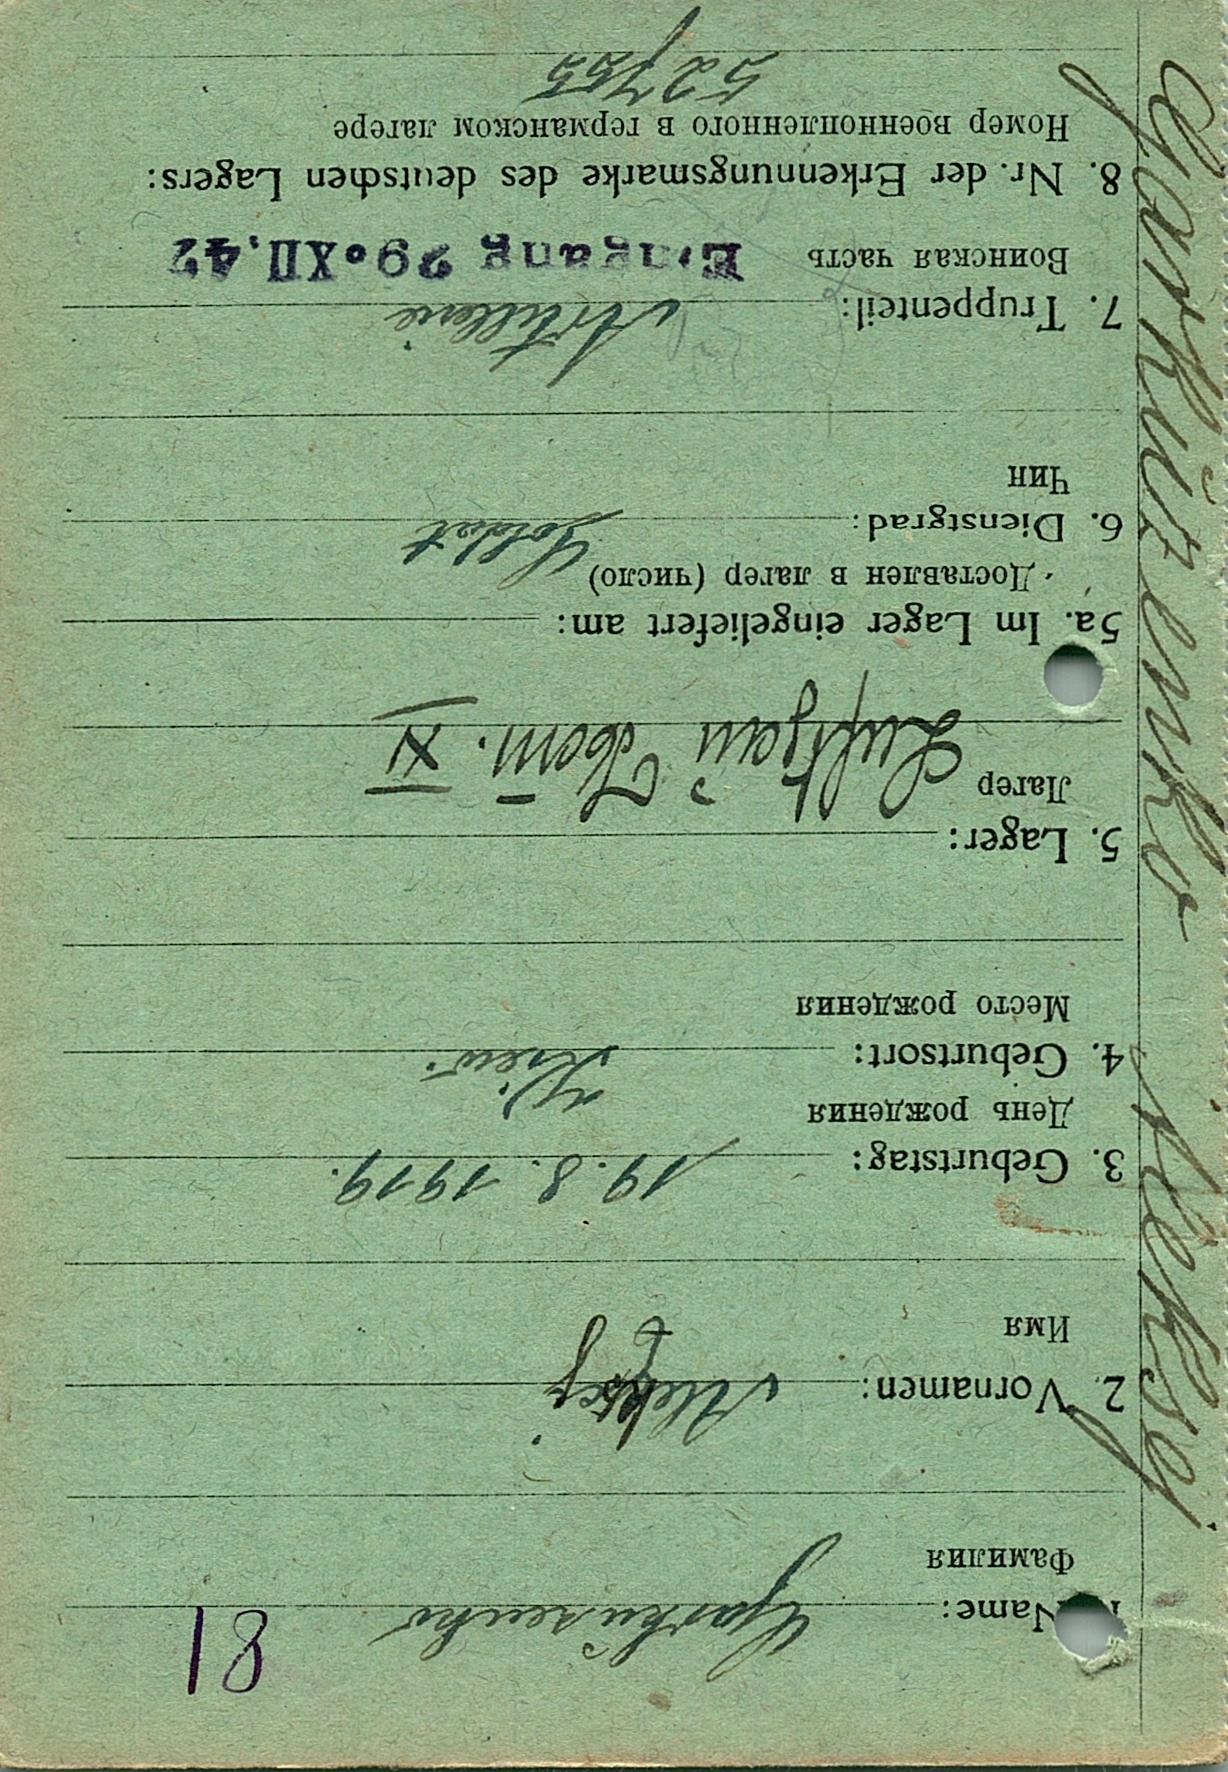 81
1. Name: Garkuzenko
Фамилия
2. Vornamen: Aleksej
Имя
3. Geburtstag: 19.8.1919.
День рождения
4. Geburtsort: Kiew.
Место рождения
5. Lager:
Лагер Luftgau Kom. XI
5a. Im Lager eingeliefert am:
Доставлен в лагер (число)
6. Dienstgrad: Soldat
Чин
7. Truppenteil: Artillerie
Воинская часть Eingang 29.XII.42
8. Nr. der Erkennungsmarke des deutschen Lagers:
Номер военнопленного в германском лагере
52755
Garkuzenko Aleksej